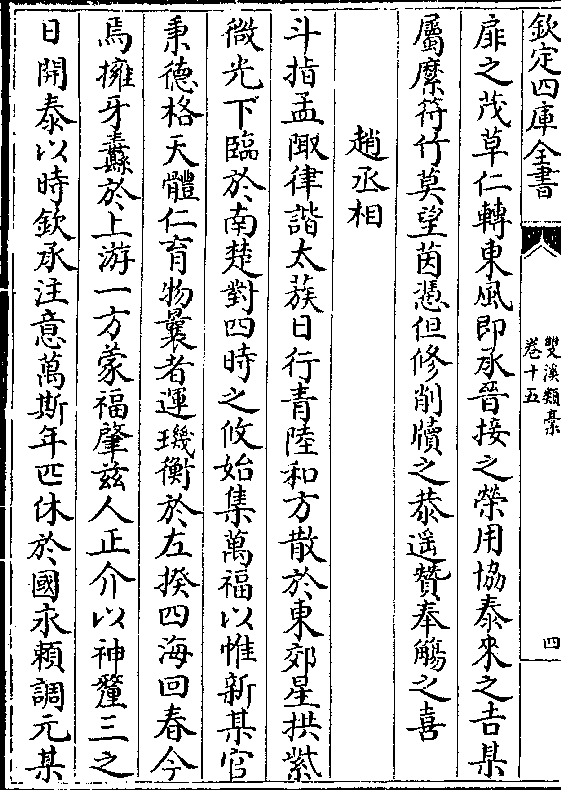 欽定四庫全書
雙溪類稾
卷十五
四
扉之茂草仁轉東風即承晉接之榮用協泰來之吉某
屬縻符竹莫望茵憑但修削牘之恭遥贊奉觴之喜
趙丞相
斗指孟陬律諧太蔟日行青陸和方散於東郊星拱紫
微光下臨於南楚對四時之攸始集萬福以惟新某官
秉德格天體仁育物曩者運璣衡於左揆四海回春今
焉擁牙纛於上游一方蒙福肇兹人正介以神釐三之
日開泰以時欽承注意萬斯年匹休於國永賴調元某